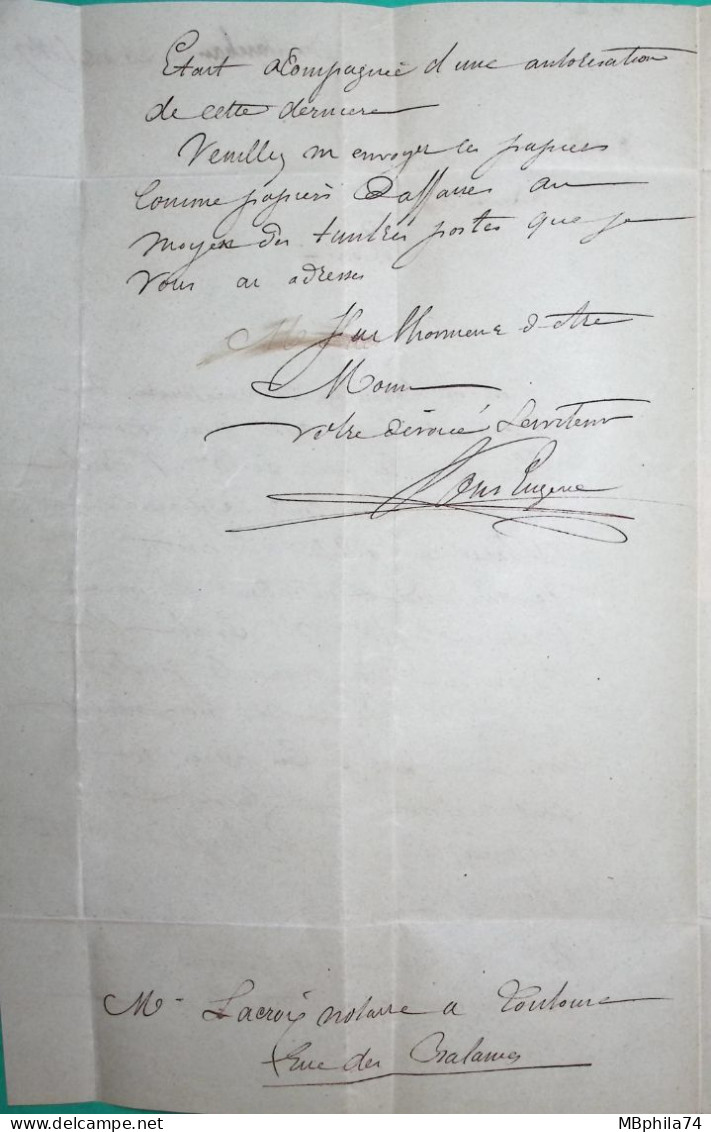 Etant acompagnée d'une autorisation
de cette derniere
Veuillez m envoyer les papiers
Comme papiers Daffaires au
moyen des timbres postes que je
vous ai adresses
J'ai l'honneur d'etre
Monsr
Votre dévoué Serviteur
Eugene
Mr Lacroix notaire a Toulouse
Rue des Balances
MBphila74